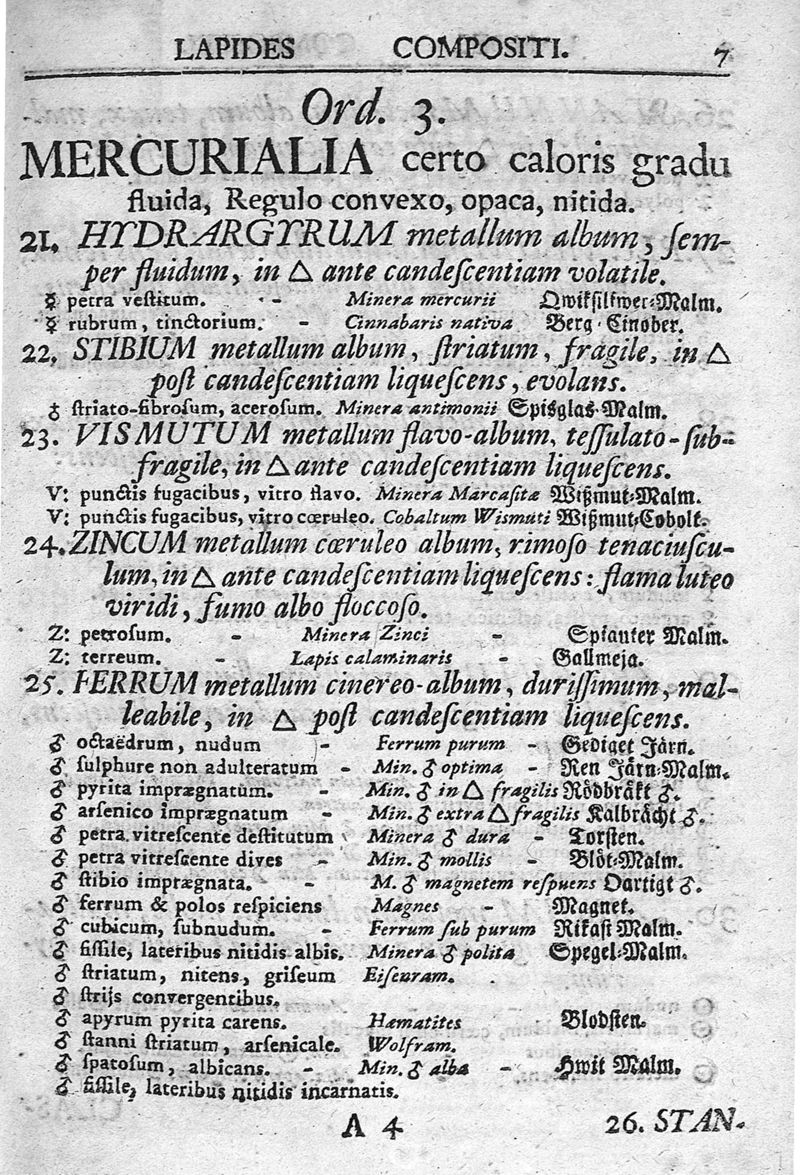 LAPIDES COMPOSITI. 7
Ord. 3.
MERCURIALIA certo caloris gradu
fluida, Regulo convexo, opaca, nitida.
21. HYDRARGYRUM metallum album, ſem-
per fluidum, in △ ante candeſcentiam volatile.
☿ petra veſtitum. - - Minera mercurii Qwikſilfwer-Malm.
☿ rubrum, tinctorium. - Cinnabaris nativa Berg-Cinober.
22. STIBIUM metallum album, ſtriatum, fragile, in △
poſt candeſcentiam liqueſcens, evolans.
♁ ſtriato-fibroſum, aceroſum. Minera antimonii Spisglas-Malm.
23. VISMUTUM metallum flavo-album, teſſulato-ſub-
fragile, in △ ante candeſcentiam liqueſcens.
V: punctis fugacibus, vitro flavo. Minera Marcaſitæ Wißmut-Malm.
V: punctis fugacibus, vitro cœruleo. Cobaltum Wismuti Wißmut-Cobolt.
24. ZINCUM metallum cœruleo album, rimoſo tenaciuſcu-
lum, in △ ante candeſcentiam liqueſcens: flama luteo
viridi, fumo albo floccoſo.
Z: petroſum. - Minera Zinci - Spiauter Malm.
Z: terreum. - Lapis calaminaris - Gallmeja.
25. FERRUM metallum cinereo-album, duriſſimum, mal-
leabile, in △ poſt candeſcentiam liqueſcens.
♂ octaëdrum, nudum - Ferrum purum - Gediget Järn.
♂ ſulphure non adulteratum - Min. ♂ optima - Ren Järn-Malm.
♂ pyrita imprægnatum. - Min. ♂ in △ fragilis Rödbräkt ♂.
♂ arſenico imprægnatum - Min. ♂ extra △ fragilis Kalbrächt ♂.
♂ petra vitreſcente deſtitutum Minera ♂ dura - Torſten.
♂ petra vitreſcente dives - Min. ♂ mollis - Blöt-Malm.
♂ ſtibio imprægnata. - M. ♂ magnetem reſpuens Oartigt ♂.
♂ ferrum & polos reſpiciens Magnes - Magnet.
♂ cubicum, ſubnudum. - Ferrum ſub purum Rikaſt Malm.
♂ fiſſile, lateribus nitidis albis. Minera ♂ polita Spegel-Malm.
♂ ſtriatum, nitens, griſeum Eiſenram.
♂ ſtrijs convergentibus.
♂ apyrum pyrita carens. Hæmatites Blodſten.
♂ ſtanni ſtriatum, arſenicale. Wolfram.
♂ ſpatoſum, albicans. - Min. ♂ alba - Hwit Malm.
♂ fiſſile, lateribus nitidis incarnatis.
A 4 26. STAN-